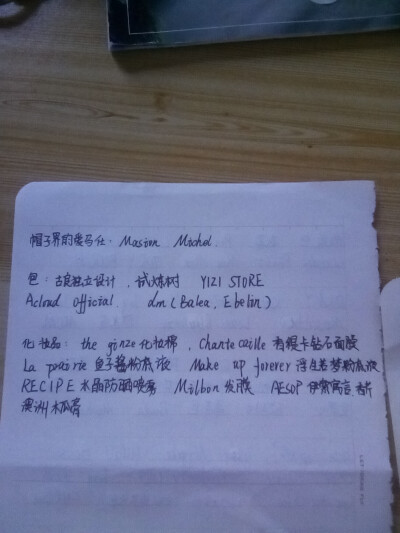 帽子界的爱马仕：Masion Michel
包：古良独立设计，试炼树 YIZI STORE
Acloud official dm (Balea, Ebelin)
化妆品：the ginze 化妆棉，Chantecaille 香缇卡钻石面膜
La prairie 鱼子酱粉底液 Make up forever 浮生若梦粉底液
RECIPE 水晶防晒喷雾 Milbon 发膜 AESOP 伊索寓言香片
澳洲木瓜膏